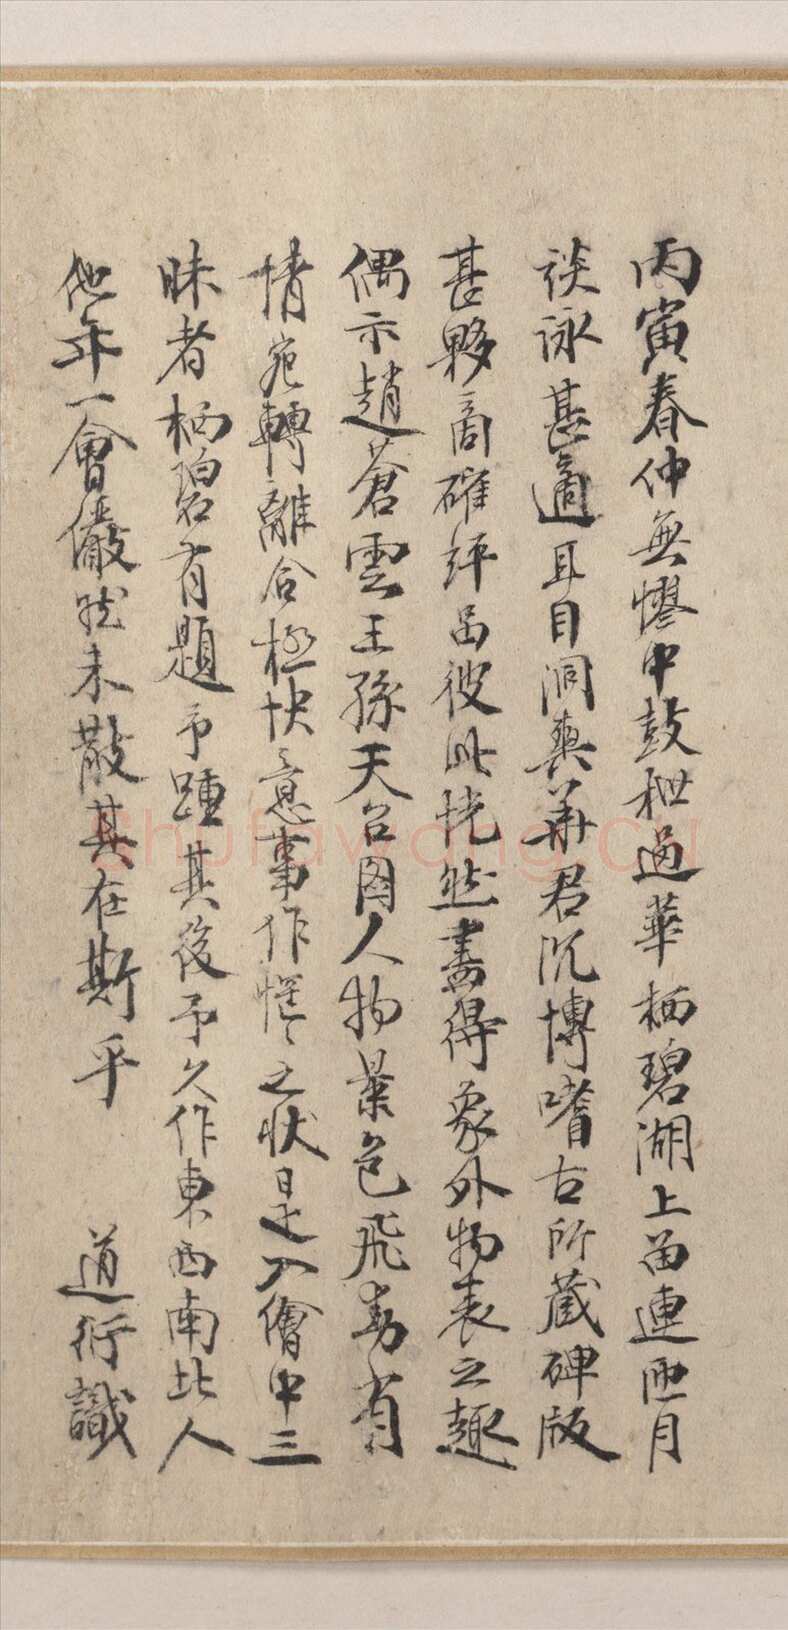 丙寅春仲無憀中鼓枻過華栖碧湖上留連匝月
談詠甚適耳目洞爽華君沉博嗜古所蔵碑版
甚夥商確評品彼此恍然盡得象外物表之趣
偶示趙蒼雲王孫天台圖人物景色飛動有
情宛轉離合極快意事作惺〻之狀是入繪中三
昧者栖碧有題予踵其後予久作東西南北人
他年一會儼然未散其在斯乎
道衍識
shufawang.cn